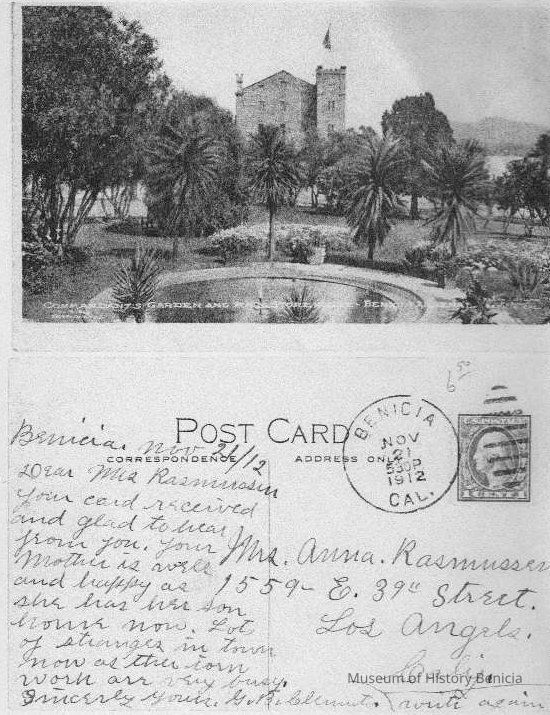 COMMANDANT'S GARDEN AND
POST CARD
CORRESPONDENCE
ADDRESS ONLY
BENICIA
NOV
21
530P
1912
CAL.
Benicia. Nov 21/12
Dear Mrs Rasmussen
Your card received
and glad to hear
from you. Your
Mother is well
and happy as
she has her son
home now. Lots
of stranges in town
now as the iorn
work arr very busy.
Sincerly Yours. G.B. Clement. write again
Mrs. Anna. Rasmussen
1559- E. 39th Street.
Los Angels.
Calif.
Museum of History Benicia